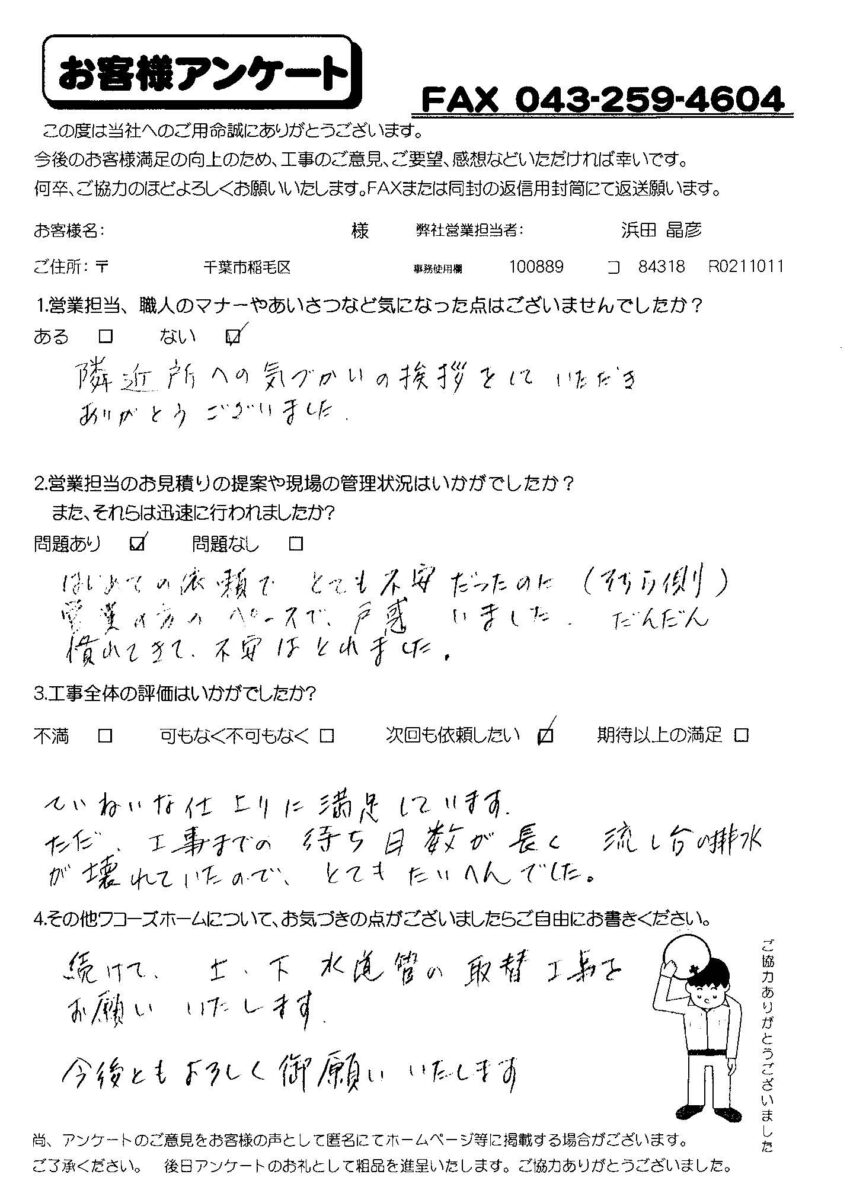 お客様アンケート
FAX 043-259-4604
この度は当社へのご用命誠にありがとうございます。
今後のお客様満足の向上のため、工事のご意見、ご要望、感想などいただければ幸いです。
何卒、ご協力のほどよろしくお願いいたします。FAXまたは同封の返信用封筒にて返送願います。
お客様名: 様 弊社営業担当者: 浜田 晶彦
ご住所:〒 千葉市稲毛区 事務使用欄 100889 コ 84318 R0211011
1.営業担当、職人のマナーやあいさつなど気になった点はございませんでしたか?
ある □ ない ☑
隣近所への気づかいの挨拶をして いただき
ありがとうございました.
2.営業担当のお見積りの提案や現場の管理状況はいかがでしたか?
また、それらは迅速に行われましたか?
問題あり ☑ 問題なし □
はじめての依頼で とても不安だったのに (そちら側)
営業の方の ペースで、戸惑 いました. だんだん
慣れてきて、不安はとれました。
3.工事全体の評価はいかがでしたか?
不満 □ 可もなく不可もなく □ 次回も依頼したい ☑ 期待以上の満足 □
ていねいな仕上りに満足しています.
ただ、工事までの 待ち日数が 長く 流し台の排水
が壊れていたので、とてもたいへんでした。
4.その他ワコーズホームについて、お気づきの点がございましたらご自由にお書きください。
続けて、 上・下 水道管の 取替工事を
お願い いたします.
今後ともよろしく御願いいたします
ご協力ありがとうございました
尚、アンケートのご意見をお客様の声として匿名にてホームページ等に掲載する場合がございます。
ご了承ください。 後日アンケートのお礼として粗品を進呈いたします。ご協力ありがとうございました。